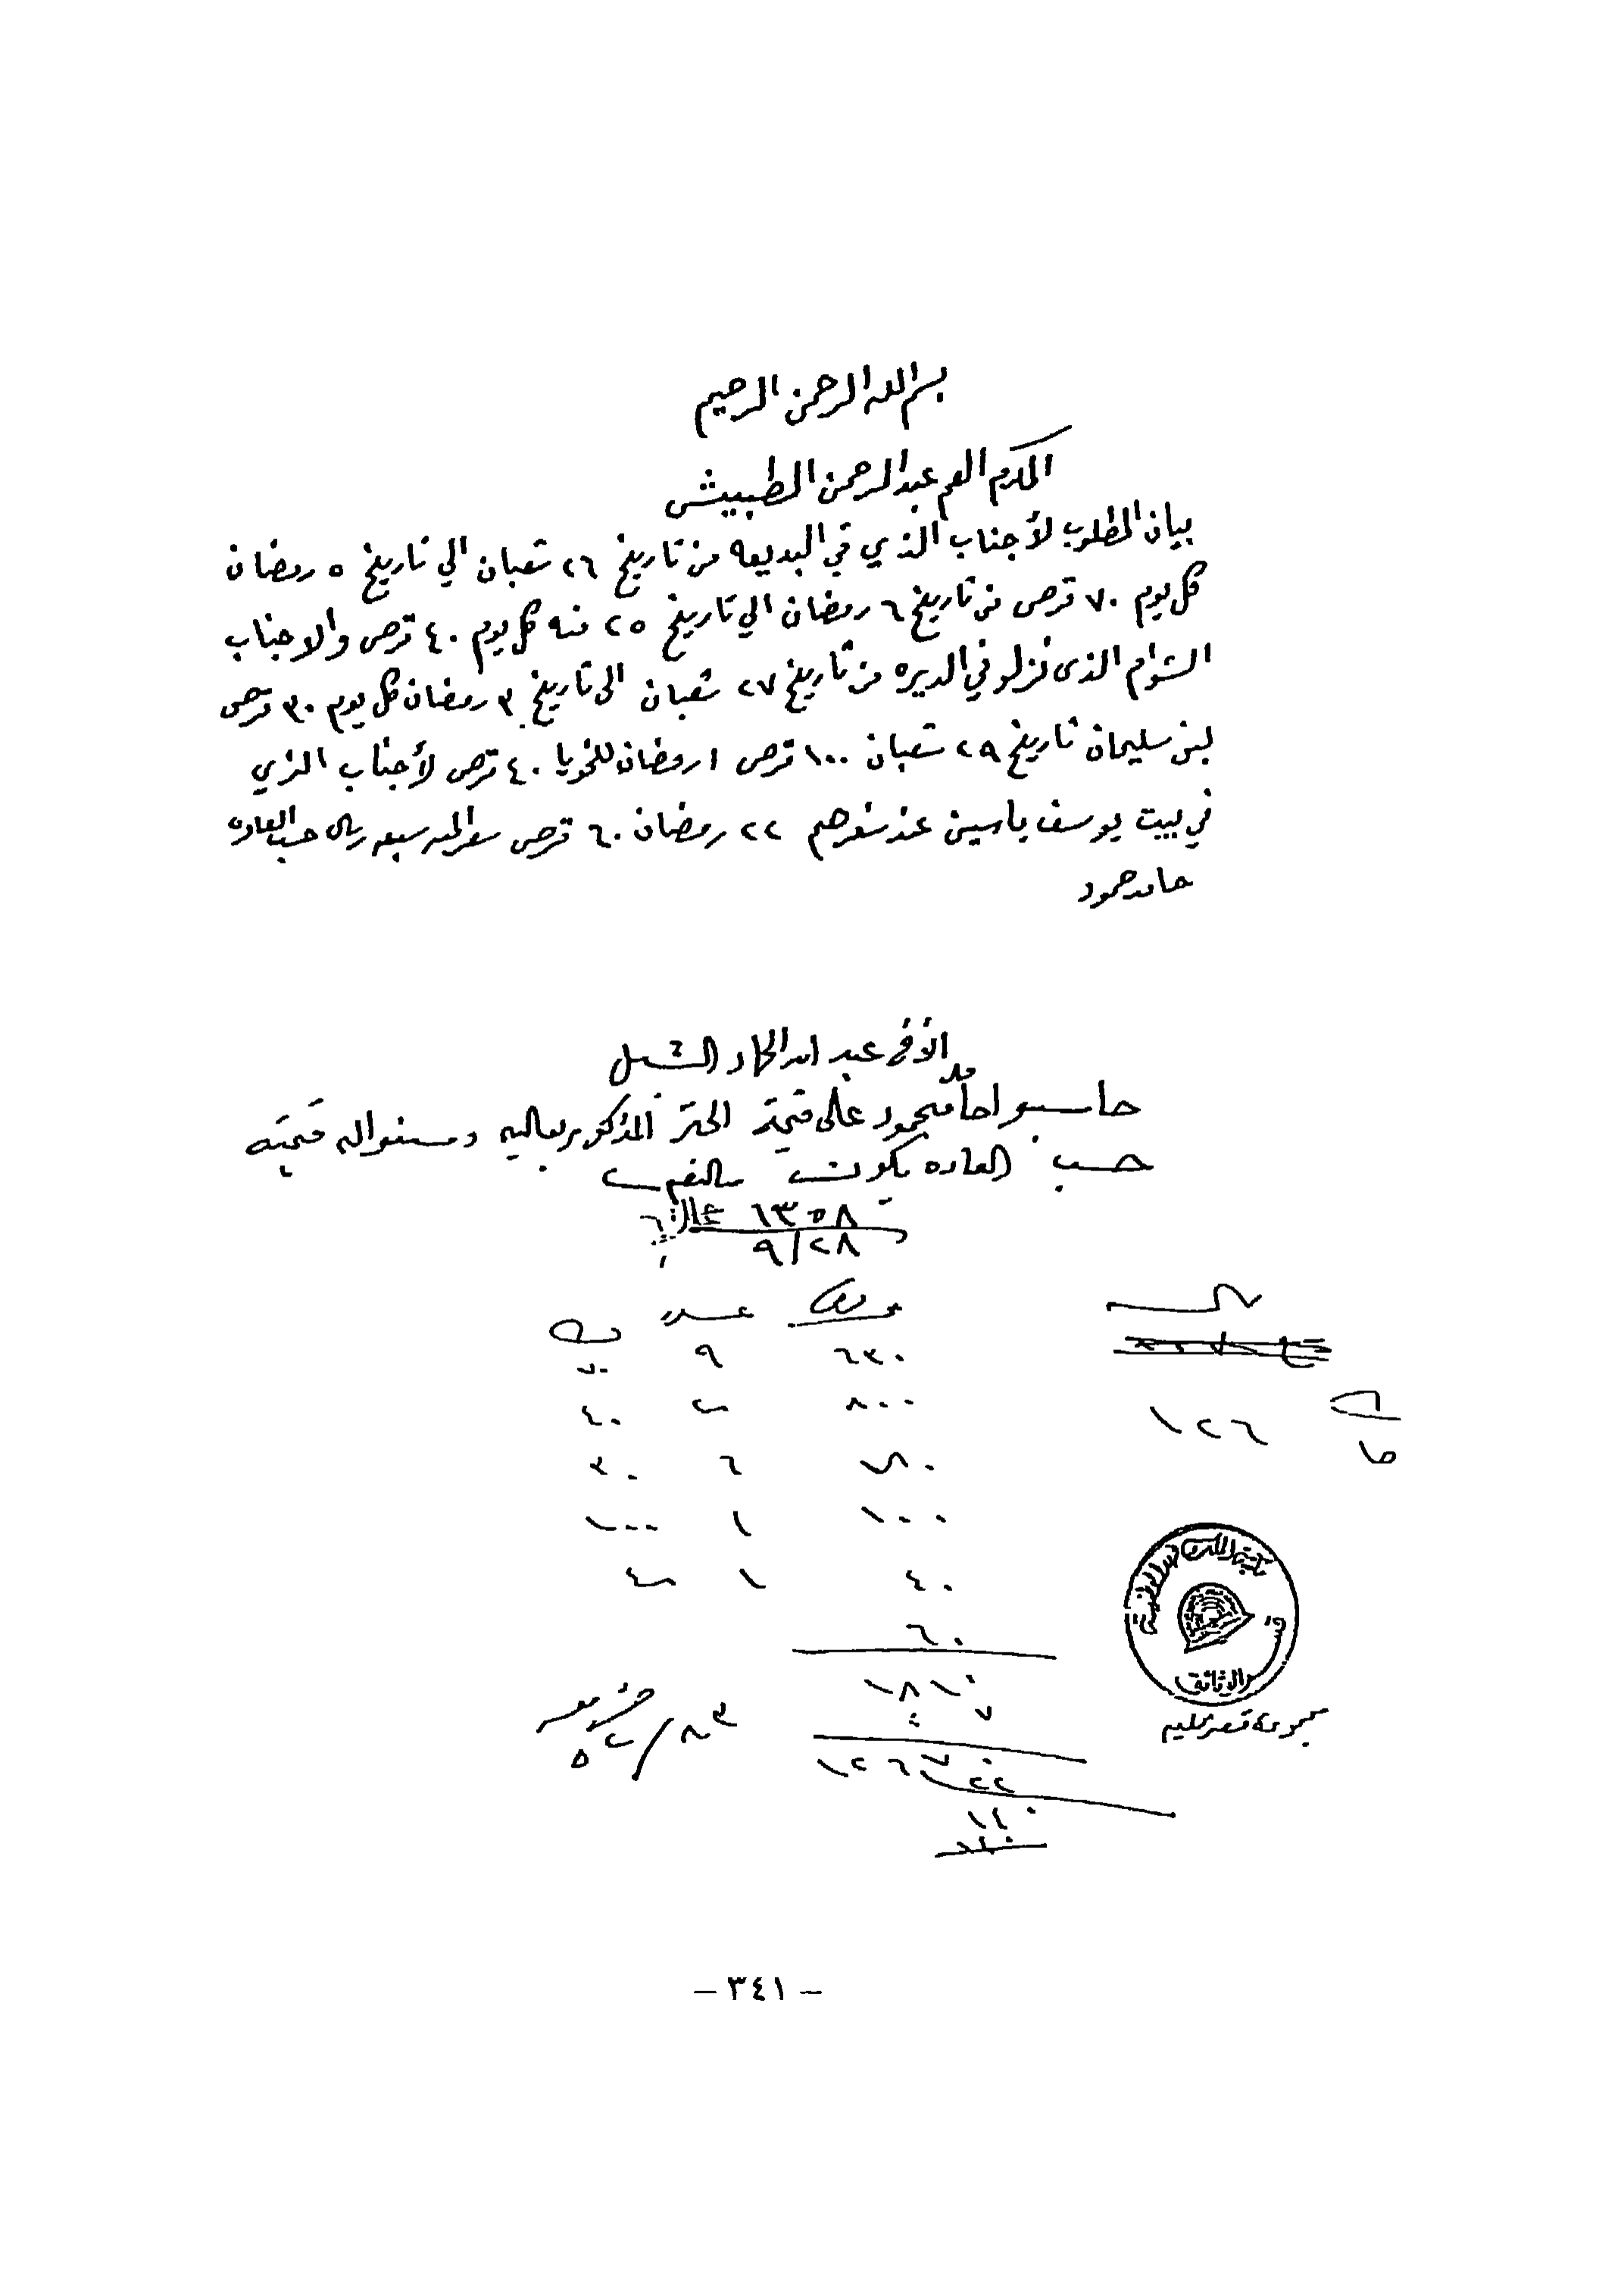 بسم الله الرحمن الرحيم
المكرم العم عبدالرحمن الطبيشي
بيان المطلوب لأجناب الذي في البديعه من تاريخ ٢٦ شعبان الي تاريخ ٥ رمضان
كل يوم ٧٠ قرص من تاريخ ٦ رمضان الي تاريخ ٢٥ منه كل يوم ٤٠ قرص والاجناب
الشوام الذي نزلو في الديره من تاريخ ٢٧ شعبان الى تاريخ ٣ رمضان كل يوم ٣٠ قرص
لبن سليمان تاريخ ٢٩ شعبان ١٠٠ قرص ١ رمضان للخويا ٤٠ قرص لأجناب الذي
في بيت يوسف ياسين عند سفرهم ٢٢ رمضان ٦٠ قرص سعر الميه سبعه ريال حسب العادت
حامد حمود
الأخ عبدالله الحماد الشبل
حاسبوا حامد حمود على قيمة الخبز المذكور بعاليه وسلموا له قيمته
حسب العاده يكون
١٣٥٨
٩/٢٨
عدد
٦٣٠ ٩ ٧٠
٨٠٠ ٢٠ ٤٠
١٨٠ ٦ ٣٠
١٠٠ ١ ١٠٠
٤٠ ١ ٤٠
٦٠
١٨١٠
٧
١٢٦٧٠
٢٢
١٤٠
١٢٦
١٥
٨٣
مكتبة الملك فهد الوطنية
قسم الوثائق
مجموعة قصر الحكم
– ٣٤١ –